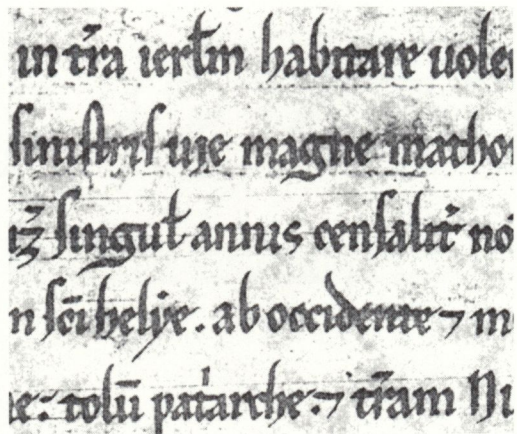 in tr̄a ierł̄m habitare uole
sinistris uie magne matho
ꝫ singuł annis censalit̄ nō
n sc̄i helye. ab occidente ⁊ m
e: tolū pat̍arche: ⁊ tr̄am Ni